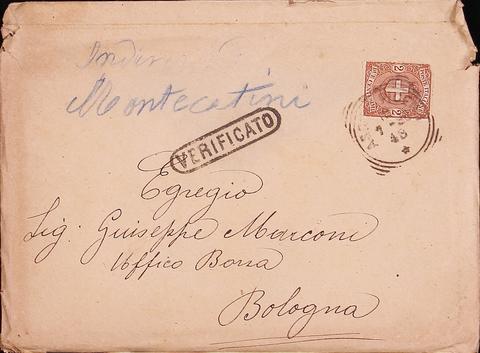 Montecatini
2
VERIFICATO
98
Egregio
Sig. Giuseppe Marconi
Uffico Borsa
Bologna